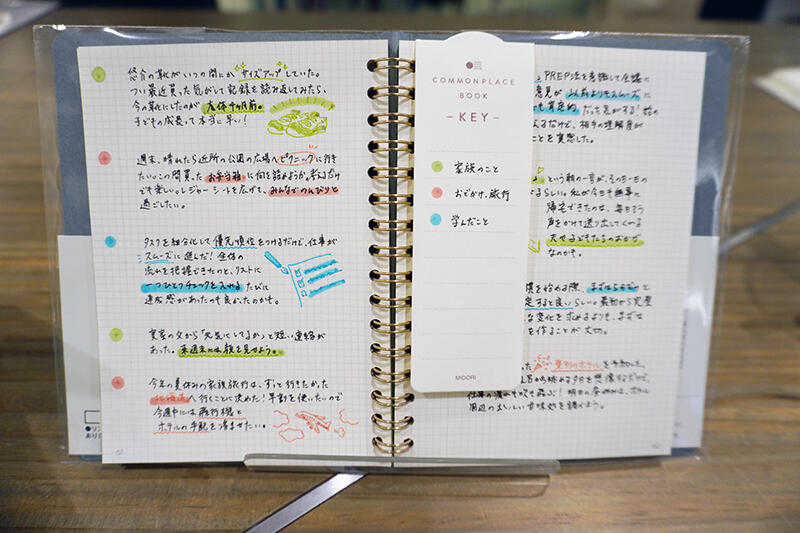 悠介の靴がいつの間にかサイズアップしていた。
つい最近買った気がして記録を読み返してみたら、
今の靴にしたのが
子どもの成長って本当に早い！
週末、晴れたら近所の公園の広場へピクニックに行き
たい。この間買ったお弁当箱に何を詰めようか、考えるだけ
でも楽しい。レジャーシートを広げて、みんなでのんびりと
過ごしたい。
タスクを細分化して優先順位をつけるだけで、仕事が
スムーズに進んだ！全体の
流れを把握できたのと、リストに
一つひとつチェックを入れるたびに
達成感があったのも良かったのかも。
実家の父から「元気にしてるか」と短い連絡が
あった。再来週末には顔を見せよう。
今年の夏休みの家族旅行は、ずっと行きたかった
北海道へ行くことに決めた！早割を使いたいので
今週中には飛行機と
ホテルの手配を済ませたい。
COMMONPLACE
BOOK
–KEY–
家族のこと
おでかけ、旅行
学んだこと
MIDORI
PREP法を意識して会議に
意見が以前よりもスムーズに
だった気がする！話の
だけで、相手の理解度が
ことを実感した。
という朝の一言が、その日一日の
らしい。私が今日も無事に
帰宅できたのは、毎日そう
声をかけて送り出してくれる
夫や子どもたちのおかげ
なのかも。
を始める際、まずは
と良いらしい。最初から完璧
な変化を求めるよりも、まずは
を作ることが大切。
のホテルを予約した。
夕日を想像するだけで、
仕事の疲れも吹き飛ぶ！明日の昼休みは、ホテル
周辺のおいしい甘味処を調べよう。